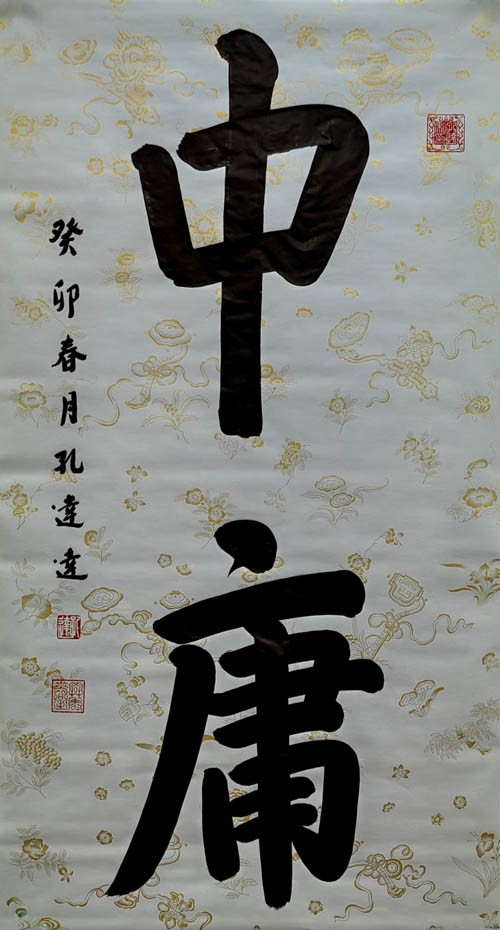 中庸
癸卯春月孔達達